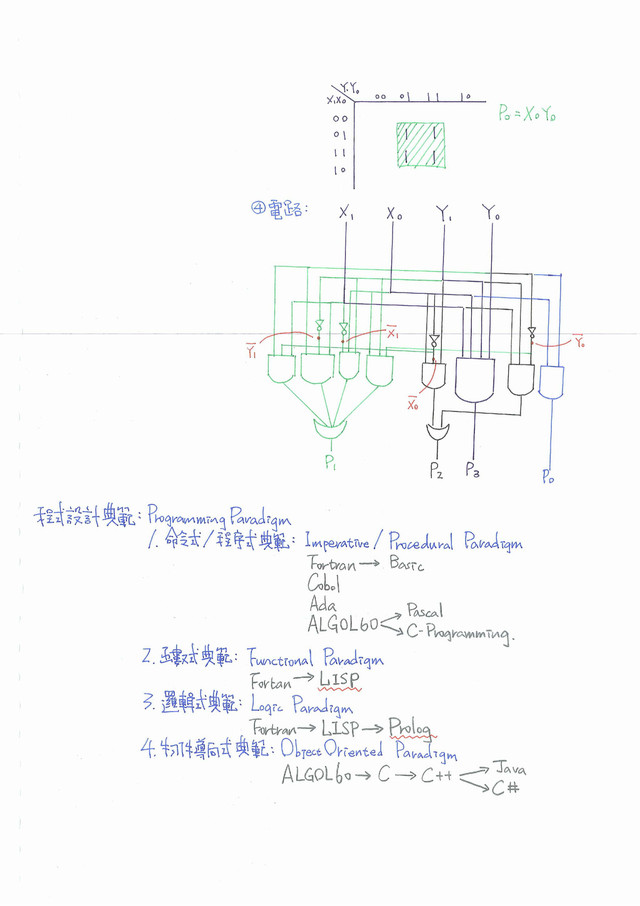 Y₁Y₀
X₁X₀ 00 01 11 10
00
01 1 1
11 1 1
10
P₀ = X₀Y₀
④電路:
X₁ X₀ Y₁ Y₀
Y̅₁ X̅₁ X̅₀ Y̅₀
P₁ P₂ P₃ P₀
程式設計典範: Programming Paradigm
1. 命令式/程序式典範: Imperative / Procedural Paradigm
Fortran → Basic
Cobol
Ada
ALGOL60 → Pascal
→ C-Programming.
2. 函數式典範: Functional Paradigm
Fortan → LISP
3. 邏輯式典範: Logic Paradigm
Fortran → LISP → Prolog
4. 物件導向式典範: Object Oriented Paradigm
ALGOL60 → C → C++ → Java
→ C#